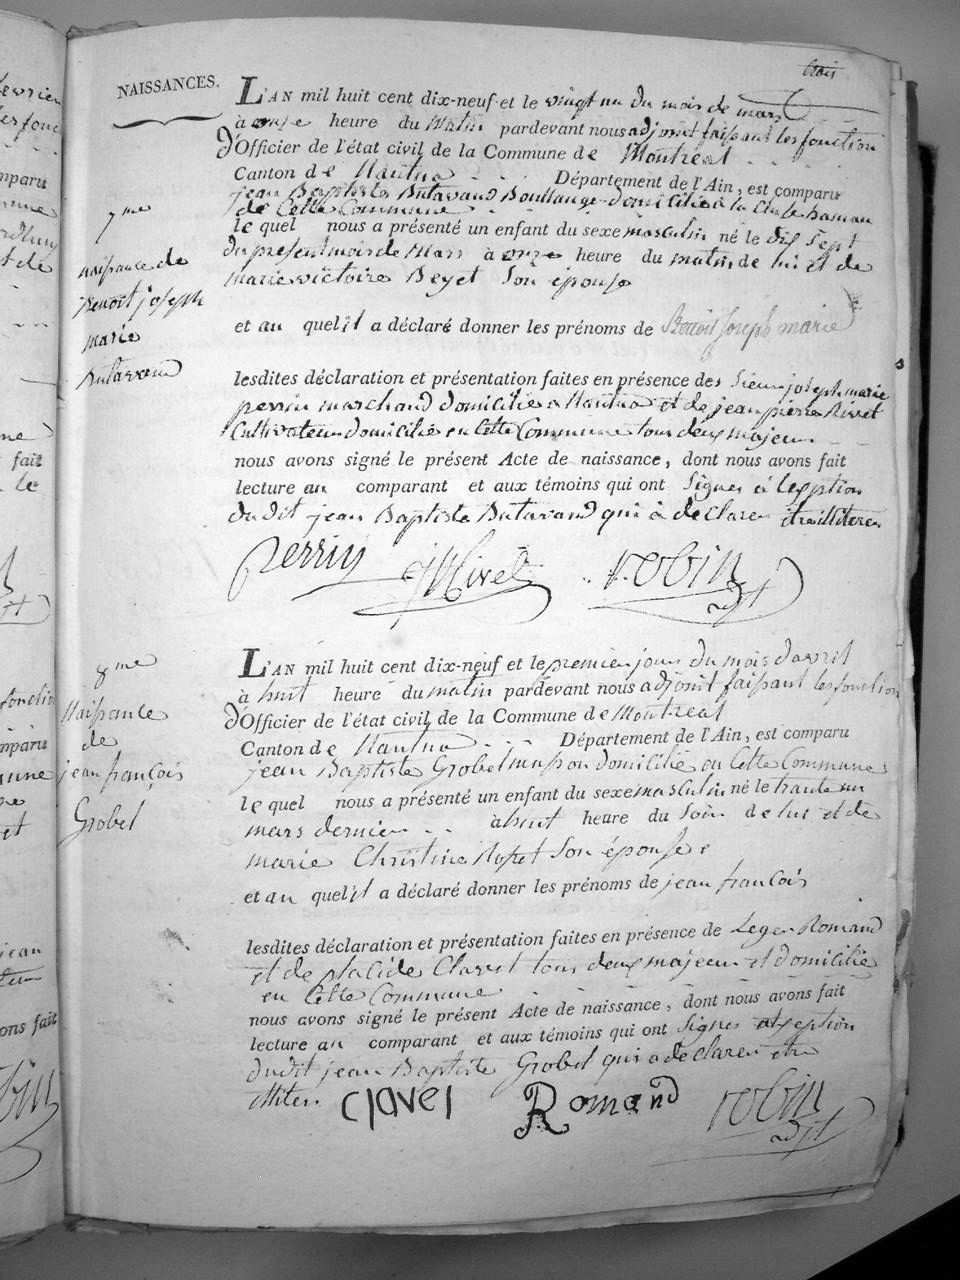 trois
NAISSANCES.
L'AN mil huit cent dix-neuf et le vingt un du mois de mars
à onze heure du Matin pardevant nous adjoint faisant les fonction
d'Officier de l'état civil de la Commune de Montreal
Canton de Nantua Département de l'Ain, est comparu
jean Baptiste Butavand Boullange domicilié à la
de Cette Commune
le quel nous a présenté un enfant du sexe masculin né le dix Sept
du present mois de Mars à onze heure du matin de lui et de
marie victoire Beyet Son épouse
et au quel il a déclaré donner les prénoms de Benoit Joseph marie
lesdites déclaration et présentation faites en présence des Sieur joseph marie
perrin marchand domicilié a Nantua et de jean pierre Rivet
Cultivateur domicilié en Cette Commune tous deux majeur
nous avons signé le présent Acte de naissance, dont nous avons fait
lecture au comparant et aux témoins qui ont Signes à l'eseption
dudit jean Baptiste Butavand qui à declarer etre illiterer
7me
naissance de
Benoit joseph
marie
Butavand
Perrin JP Rivet robin
adjt
L'AN mil huit cent dix-neuf et le premier jour du mois d'avril
à huit heure du matin pardevant nous adjoint faisant les fonction
d'Officier de l'état civil de la Commune de Montreal
Canton de Nantua Département de l'Ain, est comparu
jean Baptiste Grobel masson domicilié en Cette Commune
le quel nous a présenté un enfant du sexe masculin né le trante un
mars dernier à huit heure du Soir de lui et de
marie Christine Rosset Son épouse
et au quel il a déclaré donner les prénoms de jean françois
lesdites déclaration et présentation faites en présence de Leger Romand
et de placide Clavel tous deux majeur et domicilié
en Cette Commune
nous avons signé le présent Acte de naissance, dont nous avons fait
lecture au comparant et aux témoins qui ont Signes
dudit jean Baptiste Grobel qui a declarer etre
illiter.
8me
Naissance
de
jean françois
Grobel
clavel Romand robin
adjt